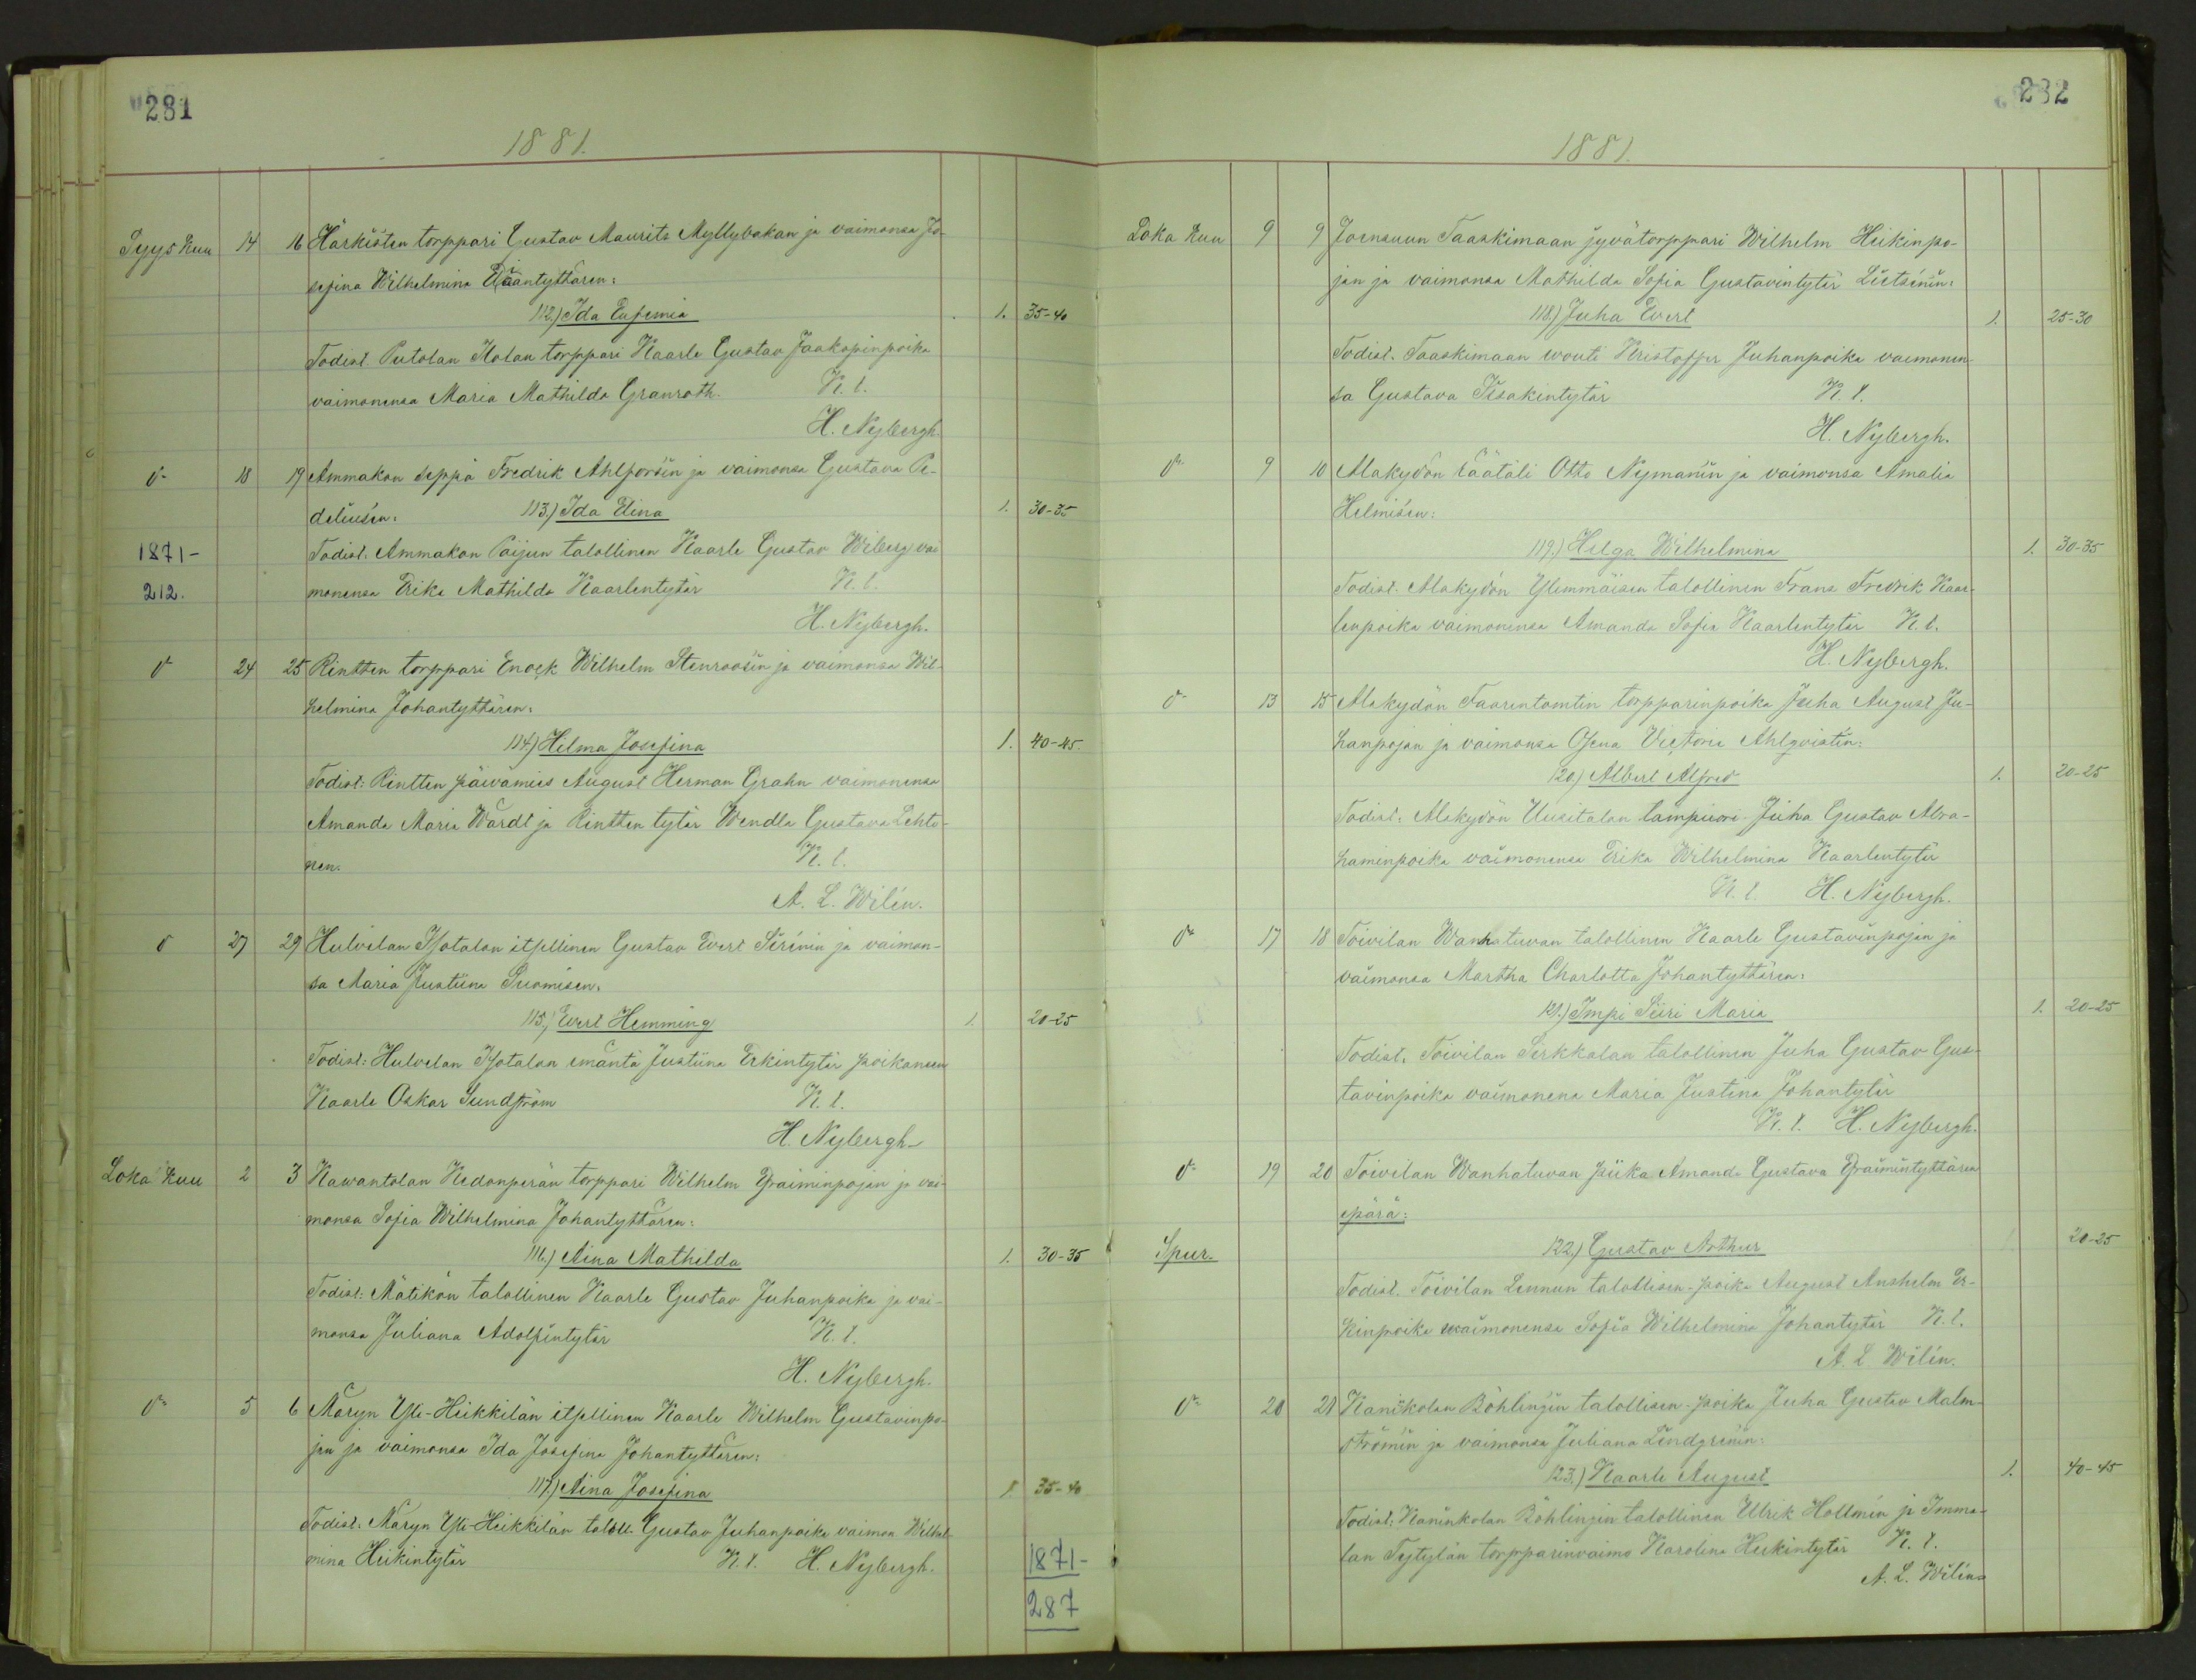 281
1881.
Syyskuu 14 16 Härkisten torppari Gustav Maurits Myllymäkan ja vaimonsa Jo-
sefina Wilhelmina Eliantyttären:
112.) Ida Eufemia 1. 35-40
Todist. Putolan Kolan torppari Kaarle Gustav Jaakopinpoika
vaimonensa Maria Mathilda Granroth. K. l.
H. Nybergh.
d:o 18 19 Ammakon seppä Fredrik Ahlforsin ja vaimonsa Gustava Pe-
deliusén: 113.) Ida Elina 1. 30-35
1871- Todist. Ammakon Paijun talollinen Kaarle Gustav Wiberg vai
212. monensa Erika Mathilda Kaarlentytär K. l.
H. Nybergh.
d:o 24 25 Rintten torppari Enock Wilhelm Stenroosin ja vaimonsa Wil-
helmina Johantyttären:
114.) Hilma Josefina 1. 40-45.
Todist: Rintten päivämies August Herman Grahn vaimonensa
Amanda Maria Wärdt ja Rintten tytär Wendla Gustava Lehto-
nen. K. l.
A. L. Wilén.
d:o 27 29 Hulvelan Isotalon itsellinen Gustav Evert Sirénin ja vaimon-
sa Maria Justiina Suomisen,
115.) Evert Hemming 1. 20-25
Todist: Hulvelan Isotalon emäntä Justiina Erkintytär poikaneen
Kaarle Oskar Sundström K. l.
H. Nybergh
Lokakuu 2 3 Kawantolan Kedonperän torppari Wilhelm Efraiminpojan ja vai-
monsa Sofia Wilhelmina Johantyttären:
116.) Aina Mathilda 1. 30-35
Todist: Mätikön talollinen Kaarle Gustav Juhanpoika ja vai-
monsa Juliana Adolfintytär K. l.
H. Nybergh.
d:o 5 6 Märyn Yli-Heikkilän itsellinen Kaarle Wilhelm Gustavinpo-
jan ja vaimonsa Ida Josefina Johantyttären:
117.) Aina Josefina 1. 35-40
Todist. Märyn Yli-Heikkilän taloll. Gustav Juhanpoika vaimon. Wilhel-
mina Heikintytär K. l. H. Nybergh.
1871-
287
282
1881.
Lokakuu 9 9 Joensuun Taaskimaan jyvätorppari Wilhelm Heikinpo-
jan ja vaimonsa Mathilda Sofia Gustavintytär Lietsénin:
118.) Juha Evert 1. 25-30
Todist. Taaskimaan wouti Kristoffer Juhanpoika vaimonen-
sa Gustava Iisakintytär K. l.
H. Nybergh.
d:o 9 10 Alakydön räätäli Otto Nymanin ja vaimonsa Amalia
Helmisén:
119.) Helga Wilhelmina 1. 30-35
Todist. Alakydön Ylimmäisen talollinen Frans Fredrik Kaar-
lenpoika vaimonensa Amanda Sofia Kaarlentytär K. l.
H. Nybergh.
d:o 13 15 Alakydön Taarentomtin torpparinpoika Juha August Ju-
hanpojan ja vaimonsa Olena Victoria Ahlqvistin:
120.) Albert Alfred 1. 20-25
Todist. Alakydön Uusitalon lampuori Juha Gustav Abra-
haminpoika vaimonensa Erika Wilhelmina Kaarlentytär
K. l. H. Nybergh.
d:o 17 18 Toivilan Wanhatuvan talollinen Kaarle Gustavinpojan ja
vaimonsa Martha Charlotta Johantyttären:
121.) Impi Siiri Maria 1. 20-25
Todist. Toivilan Sirkkalan talollinen Juha Gustav Gus-
tavinpoika vaimonena Maria Justina Johantytär
K. l. H. Nybergh.
d:o 19 20 Toivilan Wanhatuvan piika Amanda Gustava Efraimintyttären
äpärä:
Spur. 122.) Gustav Arthur 20-25
Todist. Toivilan Lennun talollisen-poika August Anshelm Er-
kinpoika vaimonensa Sofia Wilhelmina Johantytär K. l.
A. L Wilén.
d:o 20 21 Kanikolan Böhlingin talollisen-poika Juha Gustav Malm-
strömin ja vaimonsa Juliana Lindgrénin:
123.) Kaarle August 1. 40-45
Todist: Kaninkolan Böhlingin talollinen Ulrik Hollmén ja Imma-
lan Tytylän torpparinvaimo Karolina Heikintytär K. l.
A. L. Wilén